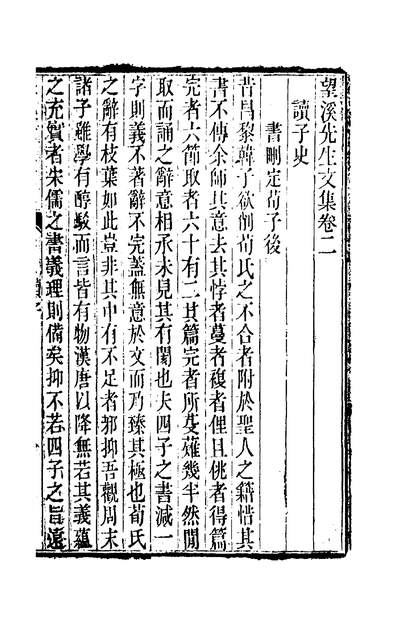 望溪先生文集卷二
讀子史
書刪定荀子後
昔昌黎韓子欲削荀氏之不合者附於聖人之籍惜其
書不傳余師其意去其悖者蔓者複者俚且佻者得篇
完者六節取者六十有二其篇完者所芟薙幾半然閒
取而誦之辭意相承未見其有闕也夫四子之書減一
字則義不著辭不完蓋無意於文而乃臻其極也荀氏
之辭有枝葉如此豈非其中有不足者邪抑吾觀周末
諸子雖學有醇駁而言皆有物漢唐以降無若其義蘊
之充實者宋儒之書義理則備矣抑不若四子之旨遠